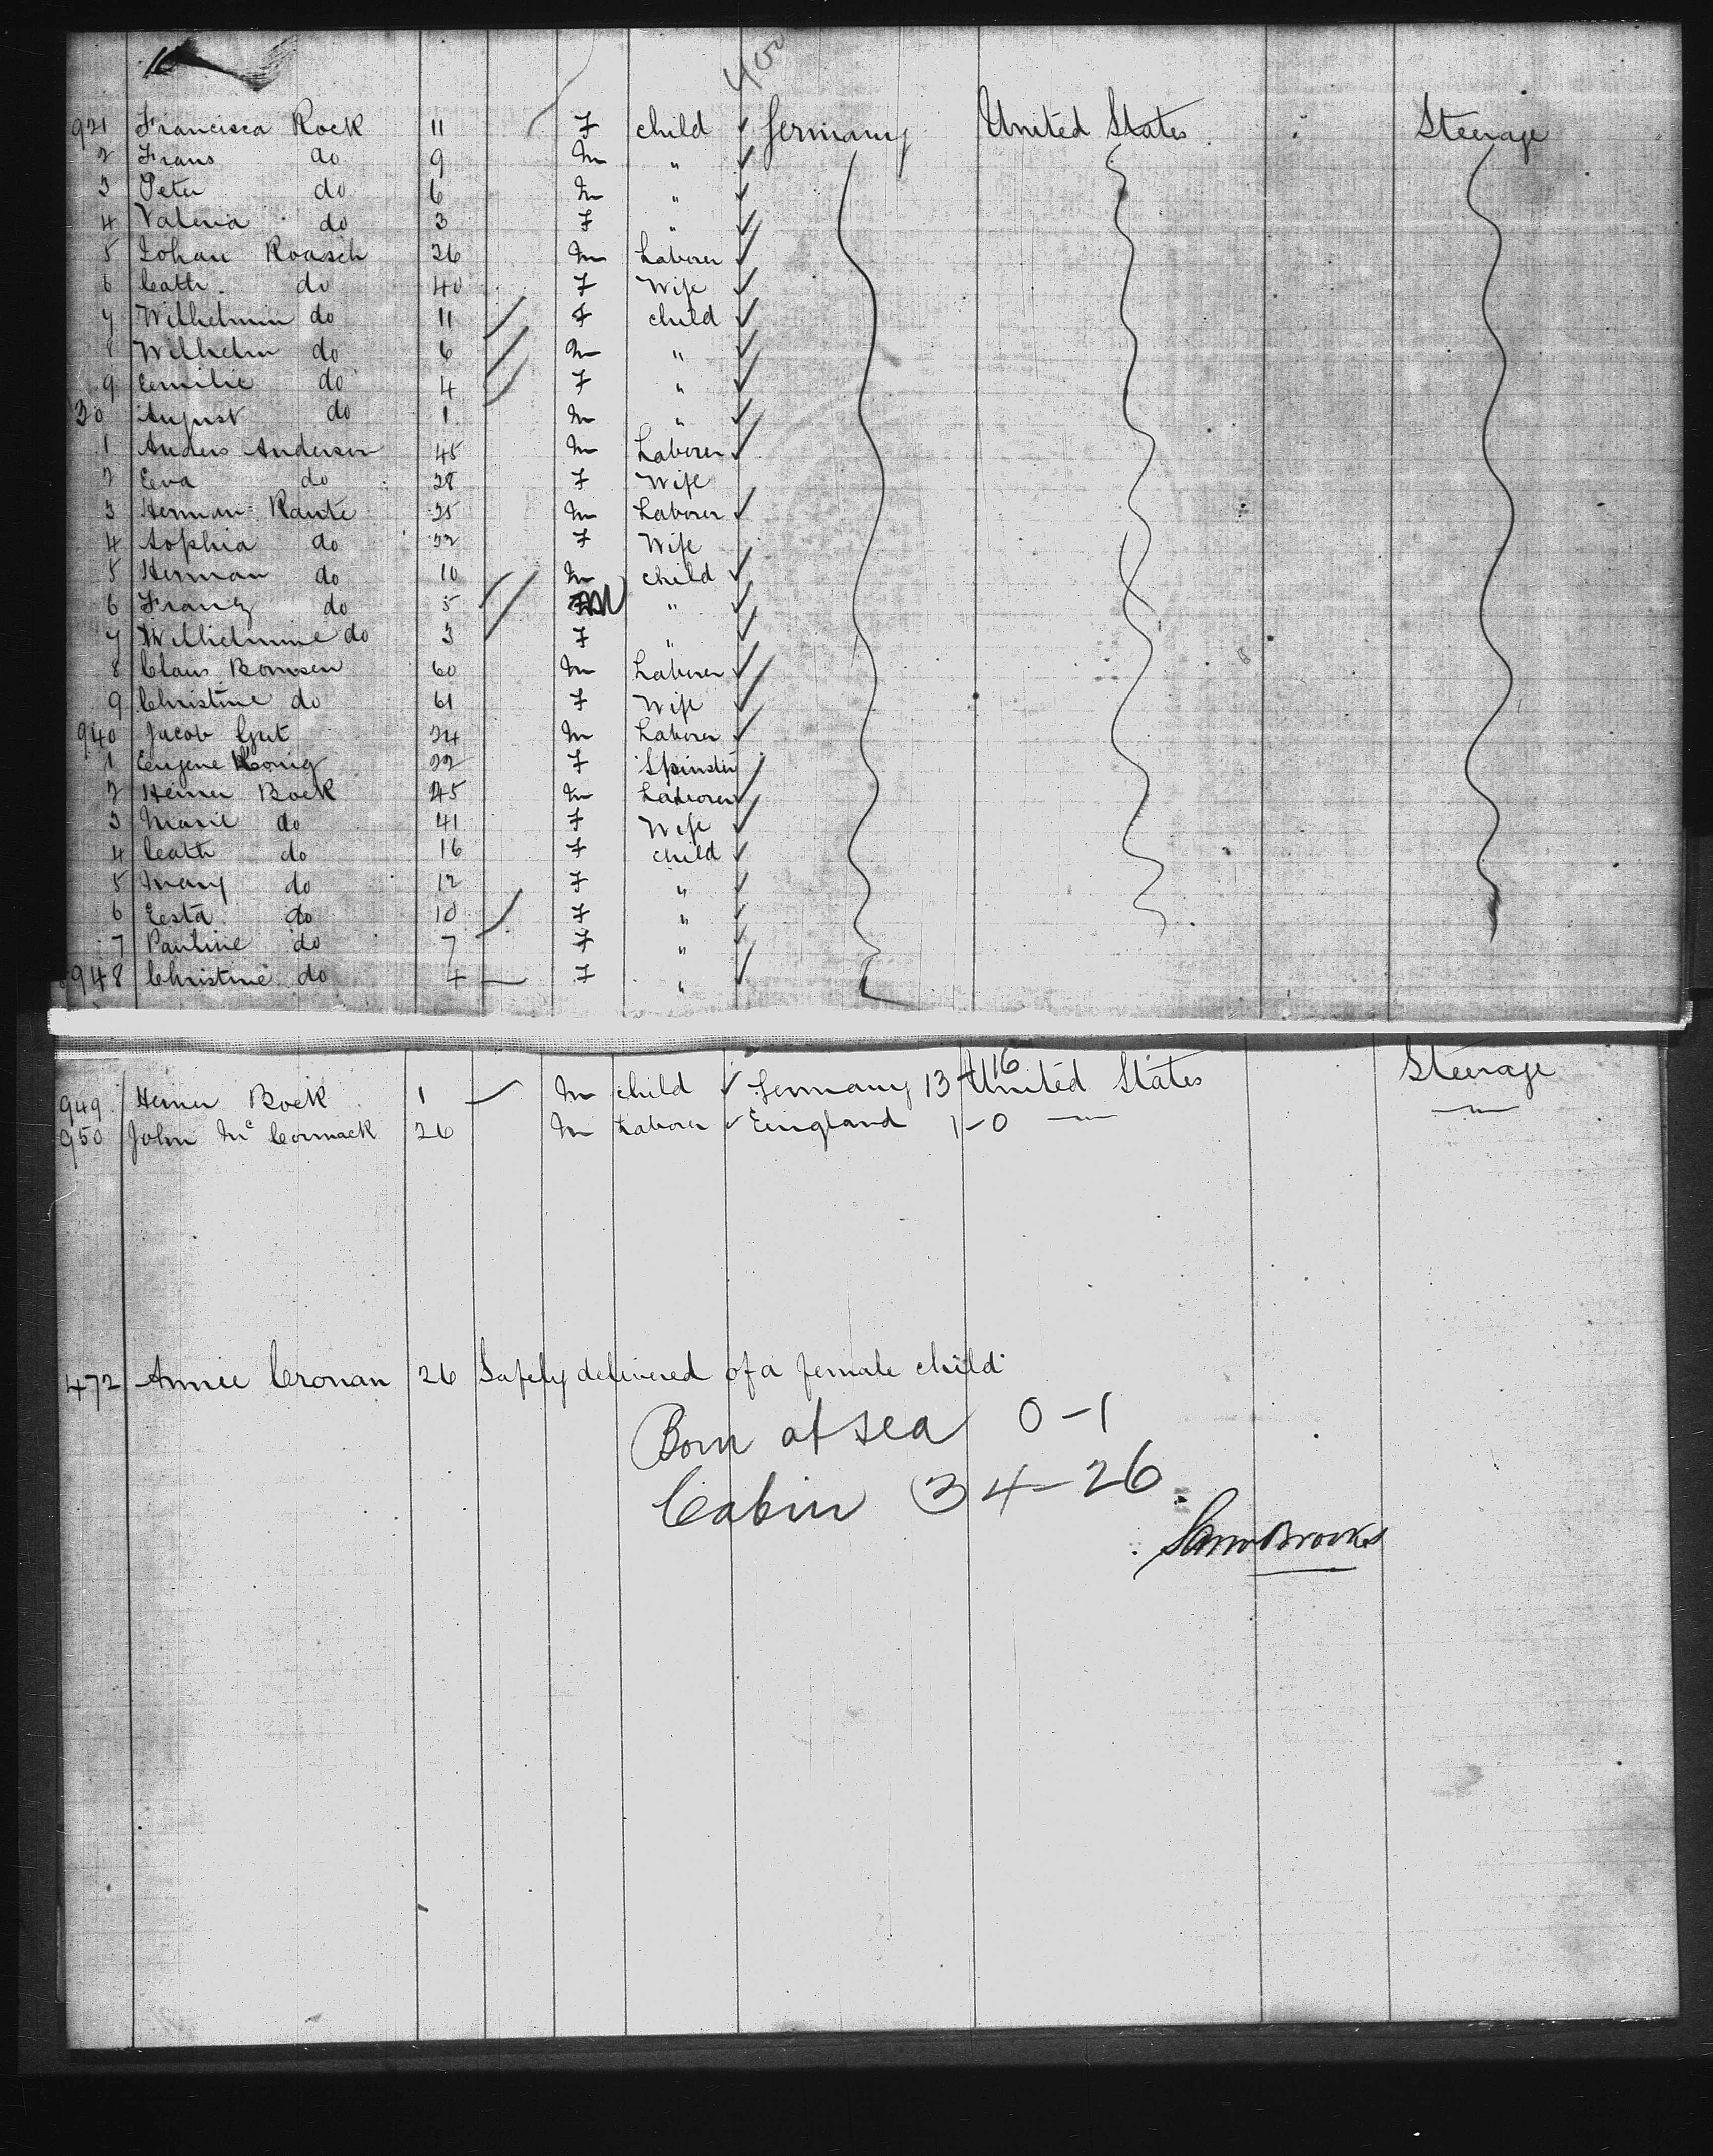 16
400
921 Francisca Rock 11 F child ✓ Germany United States Steerage
2 Frans do 9 M " ✓
3 Peter do 6 M " ✓
4 Valeria do 3 F " ✓
5 Johan Roasch 26 M Laborer ✓
6 Cath. do 40 F Wife ✓
7 Wilhelmin do 11 F child ✓
8 Wilhelm do 6 M " ✓
9 Emilie do 4 F " ✓
30 August do 1 M " ✓
1 Anders Anderson 45 M Laborer ✓
2 Eva do 28 F Wife
3 Herman Rante 25 M Laborer ✓
4 Sophia do 22 F Wife
5 Herman do 10 M child ✓
6 Franz do 5 M " ✓
7 Wilhelmine do 3 F " ✓
8 Claus Bomsen 60 M Laborer ✓
9 Christine do 61 F Wife ✓
940 Jacob Gut 24 M Laborer ✓
1 Eugene Konig 22 F Spinster ✓
2 Heiner Bock 45 M Laborer ✓
3 Marie do 41 F Wife ✓
4 Cath do 16 F child ✓
5 Mary do 12 F " ✓
6 Eesta do 10 F " ✓
7 Pauline do 7 F " ✓
948 Christine do 4 F " ✓
949 Heiner Bock 1 M child ✓ Germany 13-16 United States Steerage
950 John McCormack 26 M Laborer ✓ England 1-0 — —
472 Annie Cronan 26 Safely delivered of a female child
Born at sea 0-1
Cabin 34-26
Saml Brooks